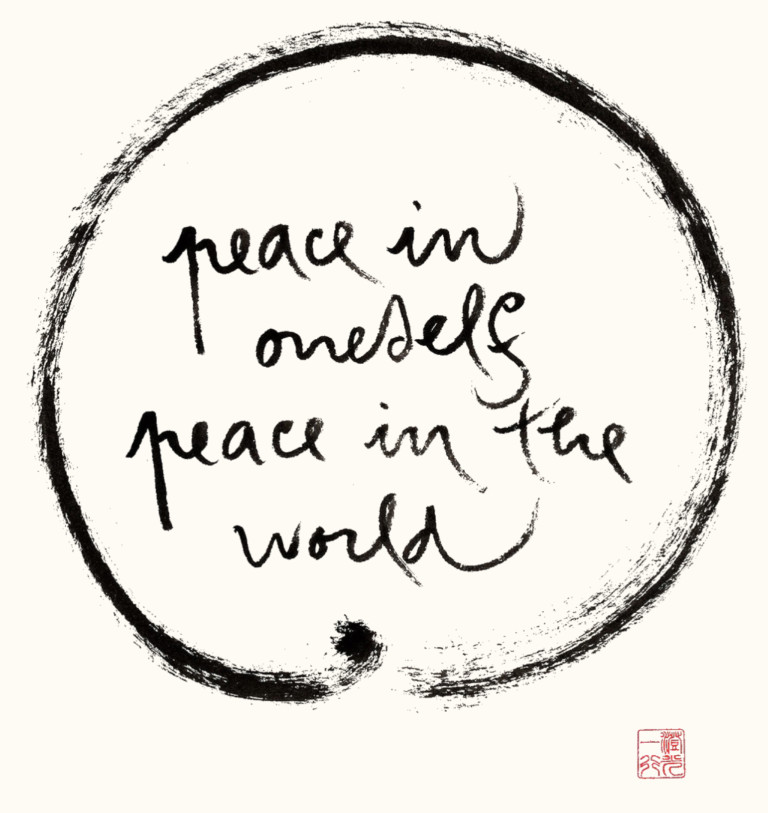 peace in
oneself
peace in the
world
澄光
一行